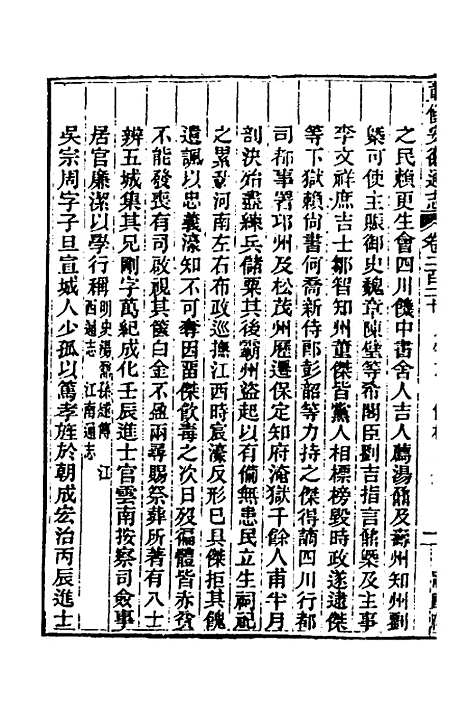 之民賴更生會四川饑中書舍人吉人薦湯鼐及壽州知州劉
槩可使主賑御史魏章陳璧等希閣臣劉吉指言鼐槩及主事
李文祥庶吉士鄒智知州董傑皆黨人相標榜毀時政遂逮傑
等下獄賴尚書何喬新侍郎彭韶等力持之傑得謫四川行都
司都事署邛州及松茂州歷遷保定知府淹獄千餘人甫半月
剖決始盡練兵儲粟其後霸州盜起以有備無患民立生祠祀
之累遷河南左右布政巡撫江西時宸濠反形已具傑拒其餽
遺諷以忠義濠知不可奪因置傑飲毒之次日歿徧體皆赤貧
不能發喪有司啟視其篋白金不盈兩尋賜祭葬所著有八士
辨五城集其兄剛字萬紀成化壬辰進士官雲南按察司僉事
居官廉潔以學行稱 明史湯鼐孫燧傳 江西通志 江南通志
吳宗周字子旦宣城人少孤以篤孝旌於朝成宏治丙辰進士